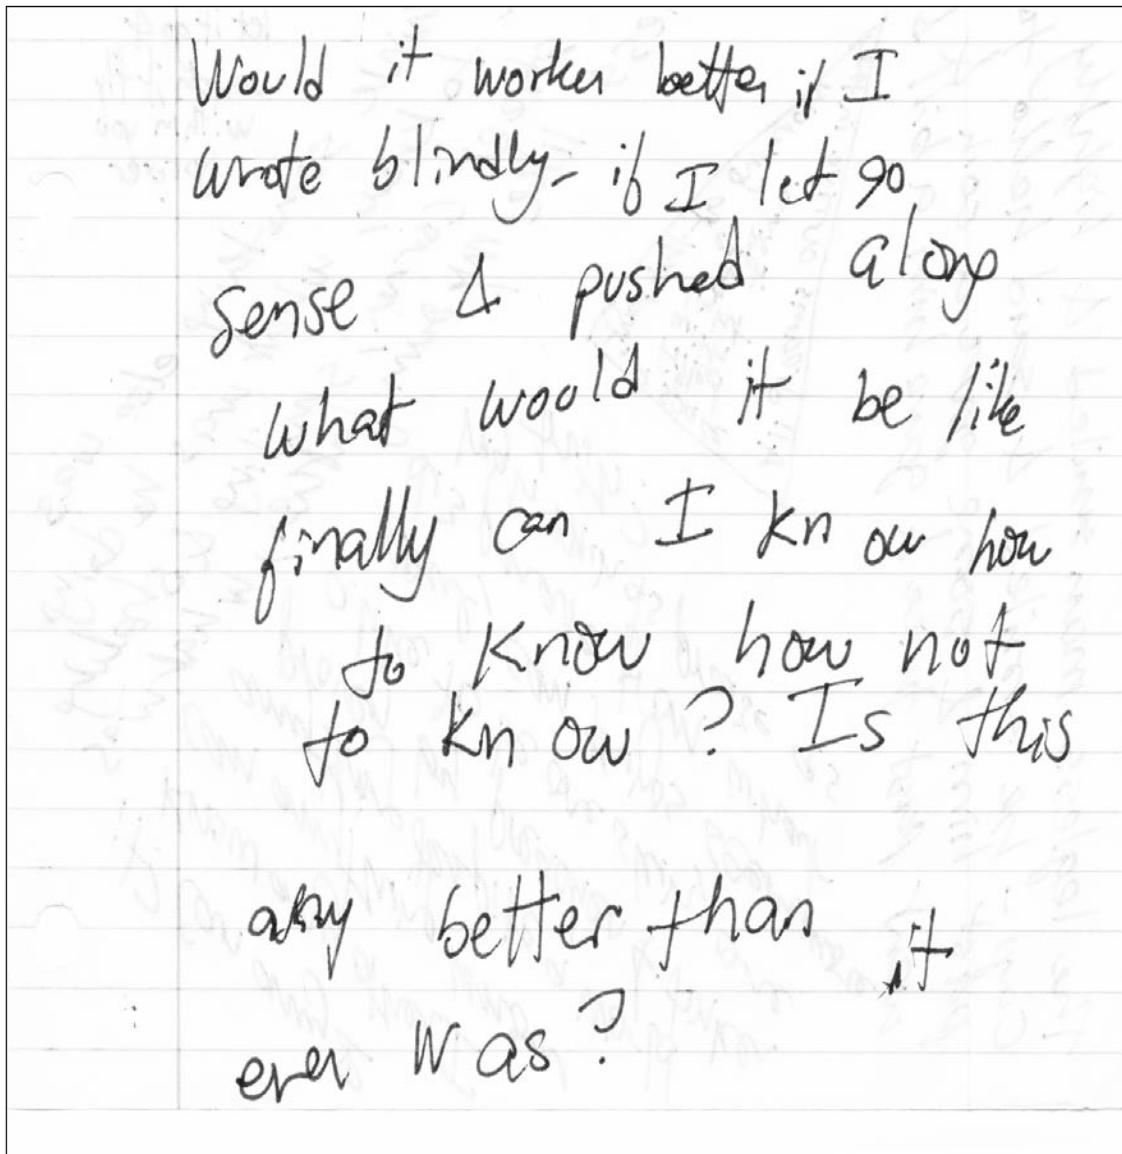 Would it worker better if I
wrote blindly - if I let go
sense & pushed along
what would it be like
finally can I know how
to know how not
to know? Is this
any better than it
ever was?